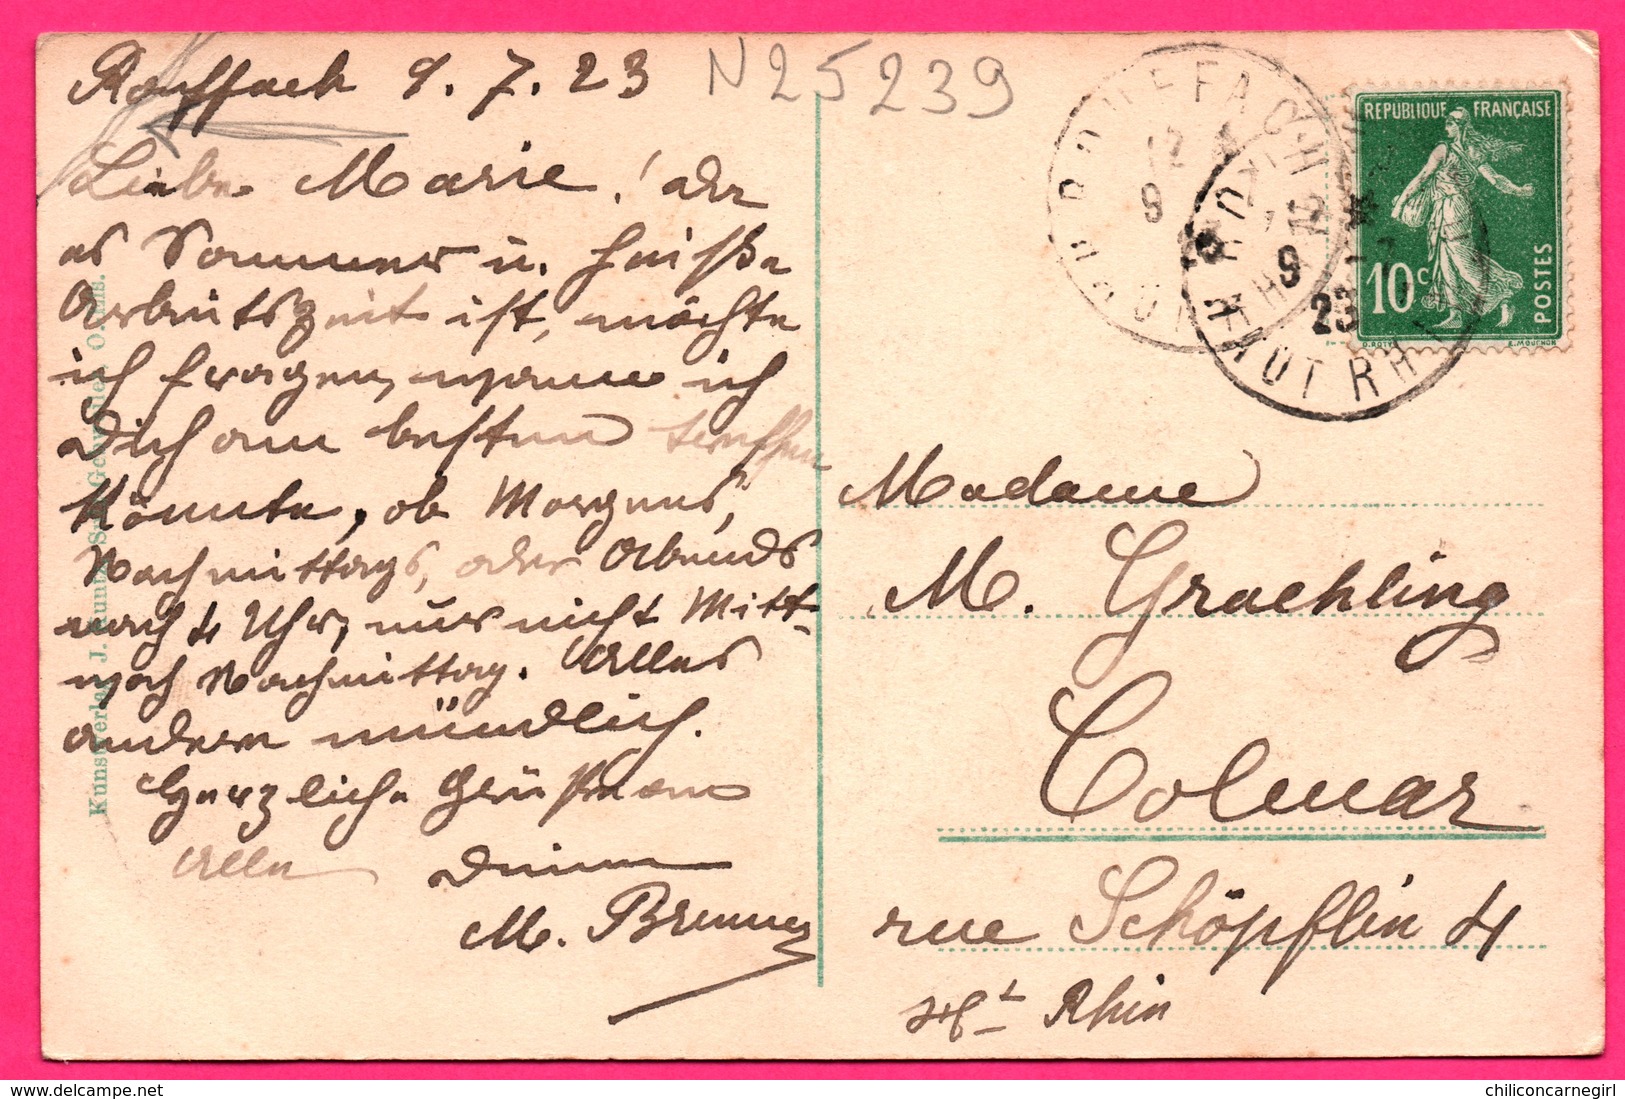 Rouffach 9.7.23
N25239
Liebe Marie! da
es Sommer u. heiße
Arbeitszeit ist, möchte
ich fragen, wann ich
Dich am besten treffen
könnte, ob Morgens,
Nachmittags, oder Abends
nach 4 Uhr, nur nicht Mitt-
woch Nachmittag. Alles
andere mündlich.
Herzliche Grüße an
Alle Deine
M. Brunner
Kunstverlag J.
ROUFFACH
12
9
HAUT RHIN
9
23
REPUBLIQUE FRANÇAISE
10c
POSTES
O. ROTY
E. MOUCHON
Madame
M. Graehling
Colmar
rue Schöpflin 4
Ht Rhin
www.delcampe.net
chiliconcarnegirl